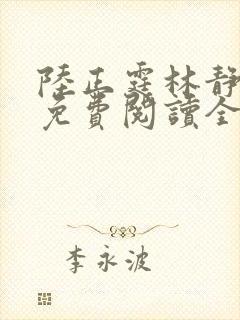 陸正霆林靜
免費閱讀全
李永波